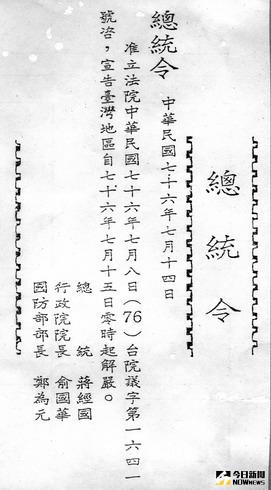 總統令
總統令　中華民國七十六年七月十四日
准立法院中華民國七十六年七月八日（76）台院議字第一六四一
號咨，宣告臺灣地區自七十六年七月十五日零時起解嚴。
總統　蔣經國
行政院院長　俞國華
國防部部長　鄭為元
今日新聞